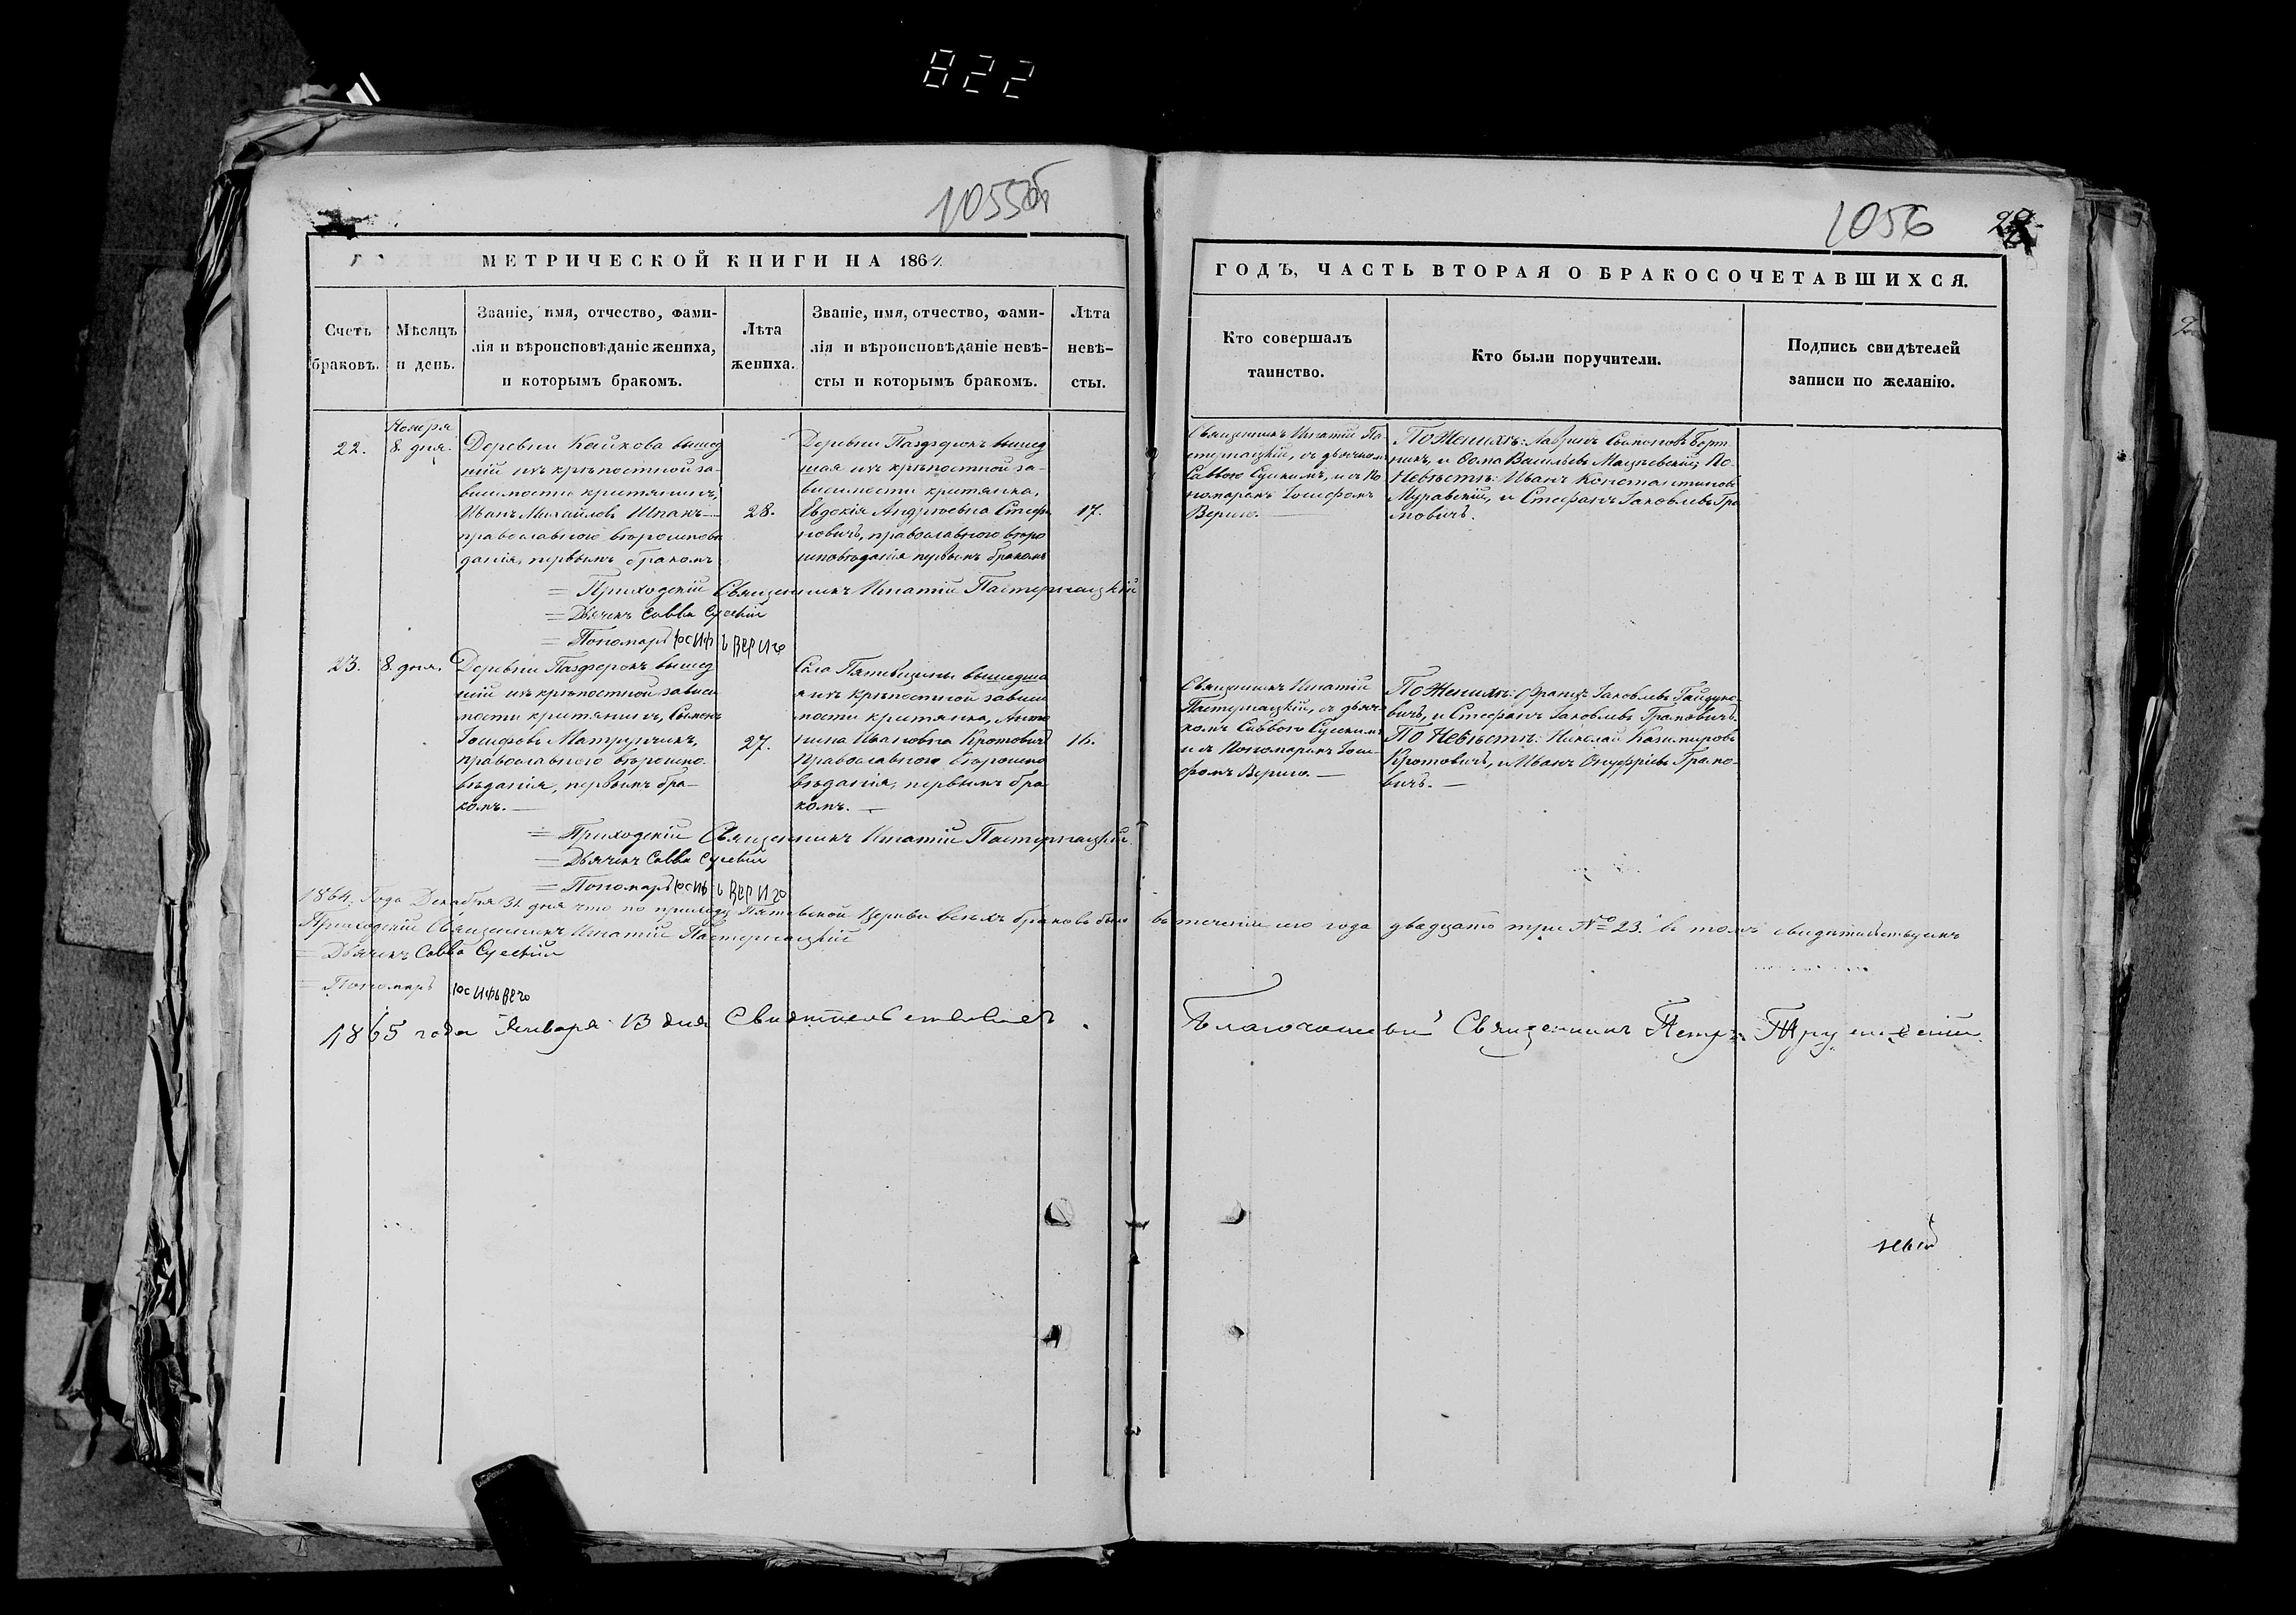 822
1055об
1056
МЕТРИЧЕСКОЙ КНИГИ НА 1864
ГОДЪ, ЧАСТЬ ВТОРАЯ О БРАКОСОЧЕТАВШИХСЯ.
Счетъ браковъ.
Мѣсяцъ и день.
Званіе, имя, отчество, фами-
лія и вѣроисповѣданіе жениха,
и которымъ бракомъ.
Лѣта
жениха.
Званіе, имя, отчество, фами-
лія и вѣроисповѣданіе невѣ-
сты и которымъ бракомъ.
Лѣта
невѣ-
сты.
Кто совершалъ
таинство.
Кто были поручители.
Подпись свидѣтелей
записи по желанію.
22.
Ноября
8. дня.
Деревни Кайкова вышед
шій изъ крѣпостной за-
висимости крестьянинъ,
Иванъ Михайловъ Шпакъ
православного вѣроисповѣ
данія, первымъ бракомъ
28.
Деревни Пагферокъ вышед
шая изъ крѣпостной за-
висимости крестьянка,
Евдокія Андреевна Стеф
новичъ, православного вѣро
исповѣданія первымъ бракомъ
17.
Священникъ Игнатій Па-
стернацкій, съ дьячкомъ
Саввою Сускимъ, и съ По
номаремъ Іосифомъ
Вериго.
По Женихѣ: Лавринъ Сымоновъ Борт
никъ, и Ѳома Васильевъ Мацкевскій; По
Невѣстѣ: Иванъ Константиновъ
Муравскій, и Стефанъ Іаковлевъ Гра
мовичъ.
= Приходскій Священникъ Игнатій Пастернацкій
= Дьячекъ Савва Суский
= Пономаръ Іосифъ Вериго
23.
8. дня.
Деревни Пагферокъ вышед
шій изъ крѣпостной зависи
мости крестьянинъ, Сымонъ
Іосифовъ Матрунчикъ,
православного вѣроиспо
вѣданія, первымъ бра-
комъ.
27.
Села Пятевщины вышедша
я изъ крѣпостной зависи
мости крестьянка, Анто
нина Ивановна Кротовичъ
Православного вѣроиспо
вѣданія, первымъ бра
комъ.
16.
Священникъ Игнатій
Пастернацкій, съ дьяч-
комъ Саввою Сускимъ
и съ Пономаремъ Іоси-
фомъ Вериго.
По Женихѣ: Францъ Іаковлевъ Гайдуко
вичъ, и Стефанъ Іаковлевъ Грамовичъ.
По Невѣстѣ: Николай Казимировъ
Кротовичъ, и Иванъ Онуфріевъ Грамо-
вичъ.
= Приходскій Священникъ Игнатій Пастернацкій.
= Дьячекъ Савва Суский
= Пономаръ Іосифъ Вериго
1864. Года Декабря 31. дня что по приходу Пятевской Церкви всѣхъ браковъ было въ теченіи сего года двадцать три № 23. въ томъ свидѣтельствуемъ
Приходскій Священникъ Игнатій Пастернацкій
= Дьячекъ Савва Суский
= Пономаръ Іосифъ Вериго
1865 года Января 13 дня Свидѣтельствовалъ Благочинный Священникъ Петръ